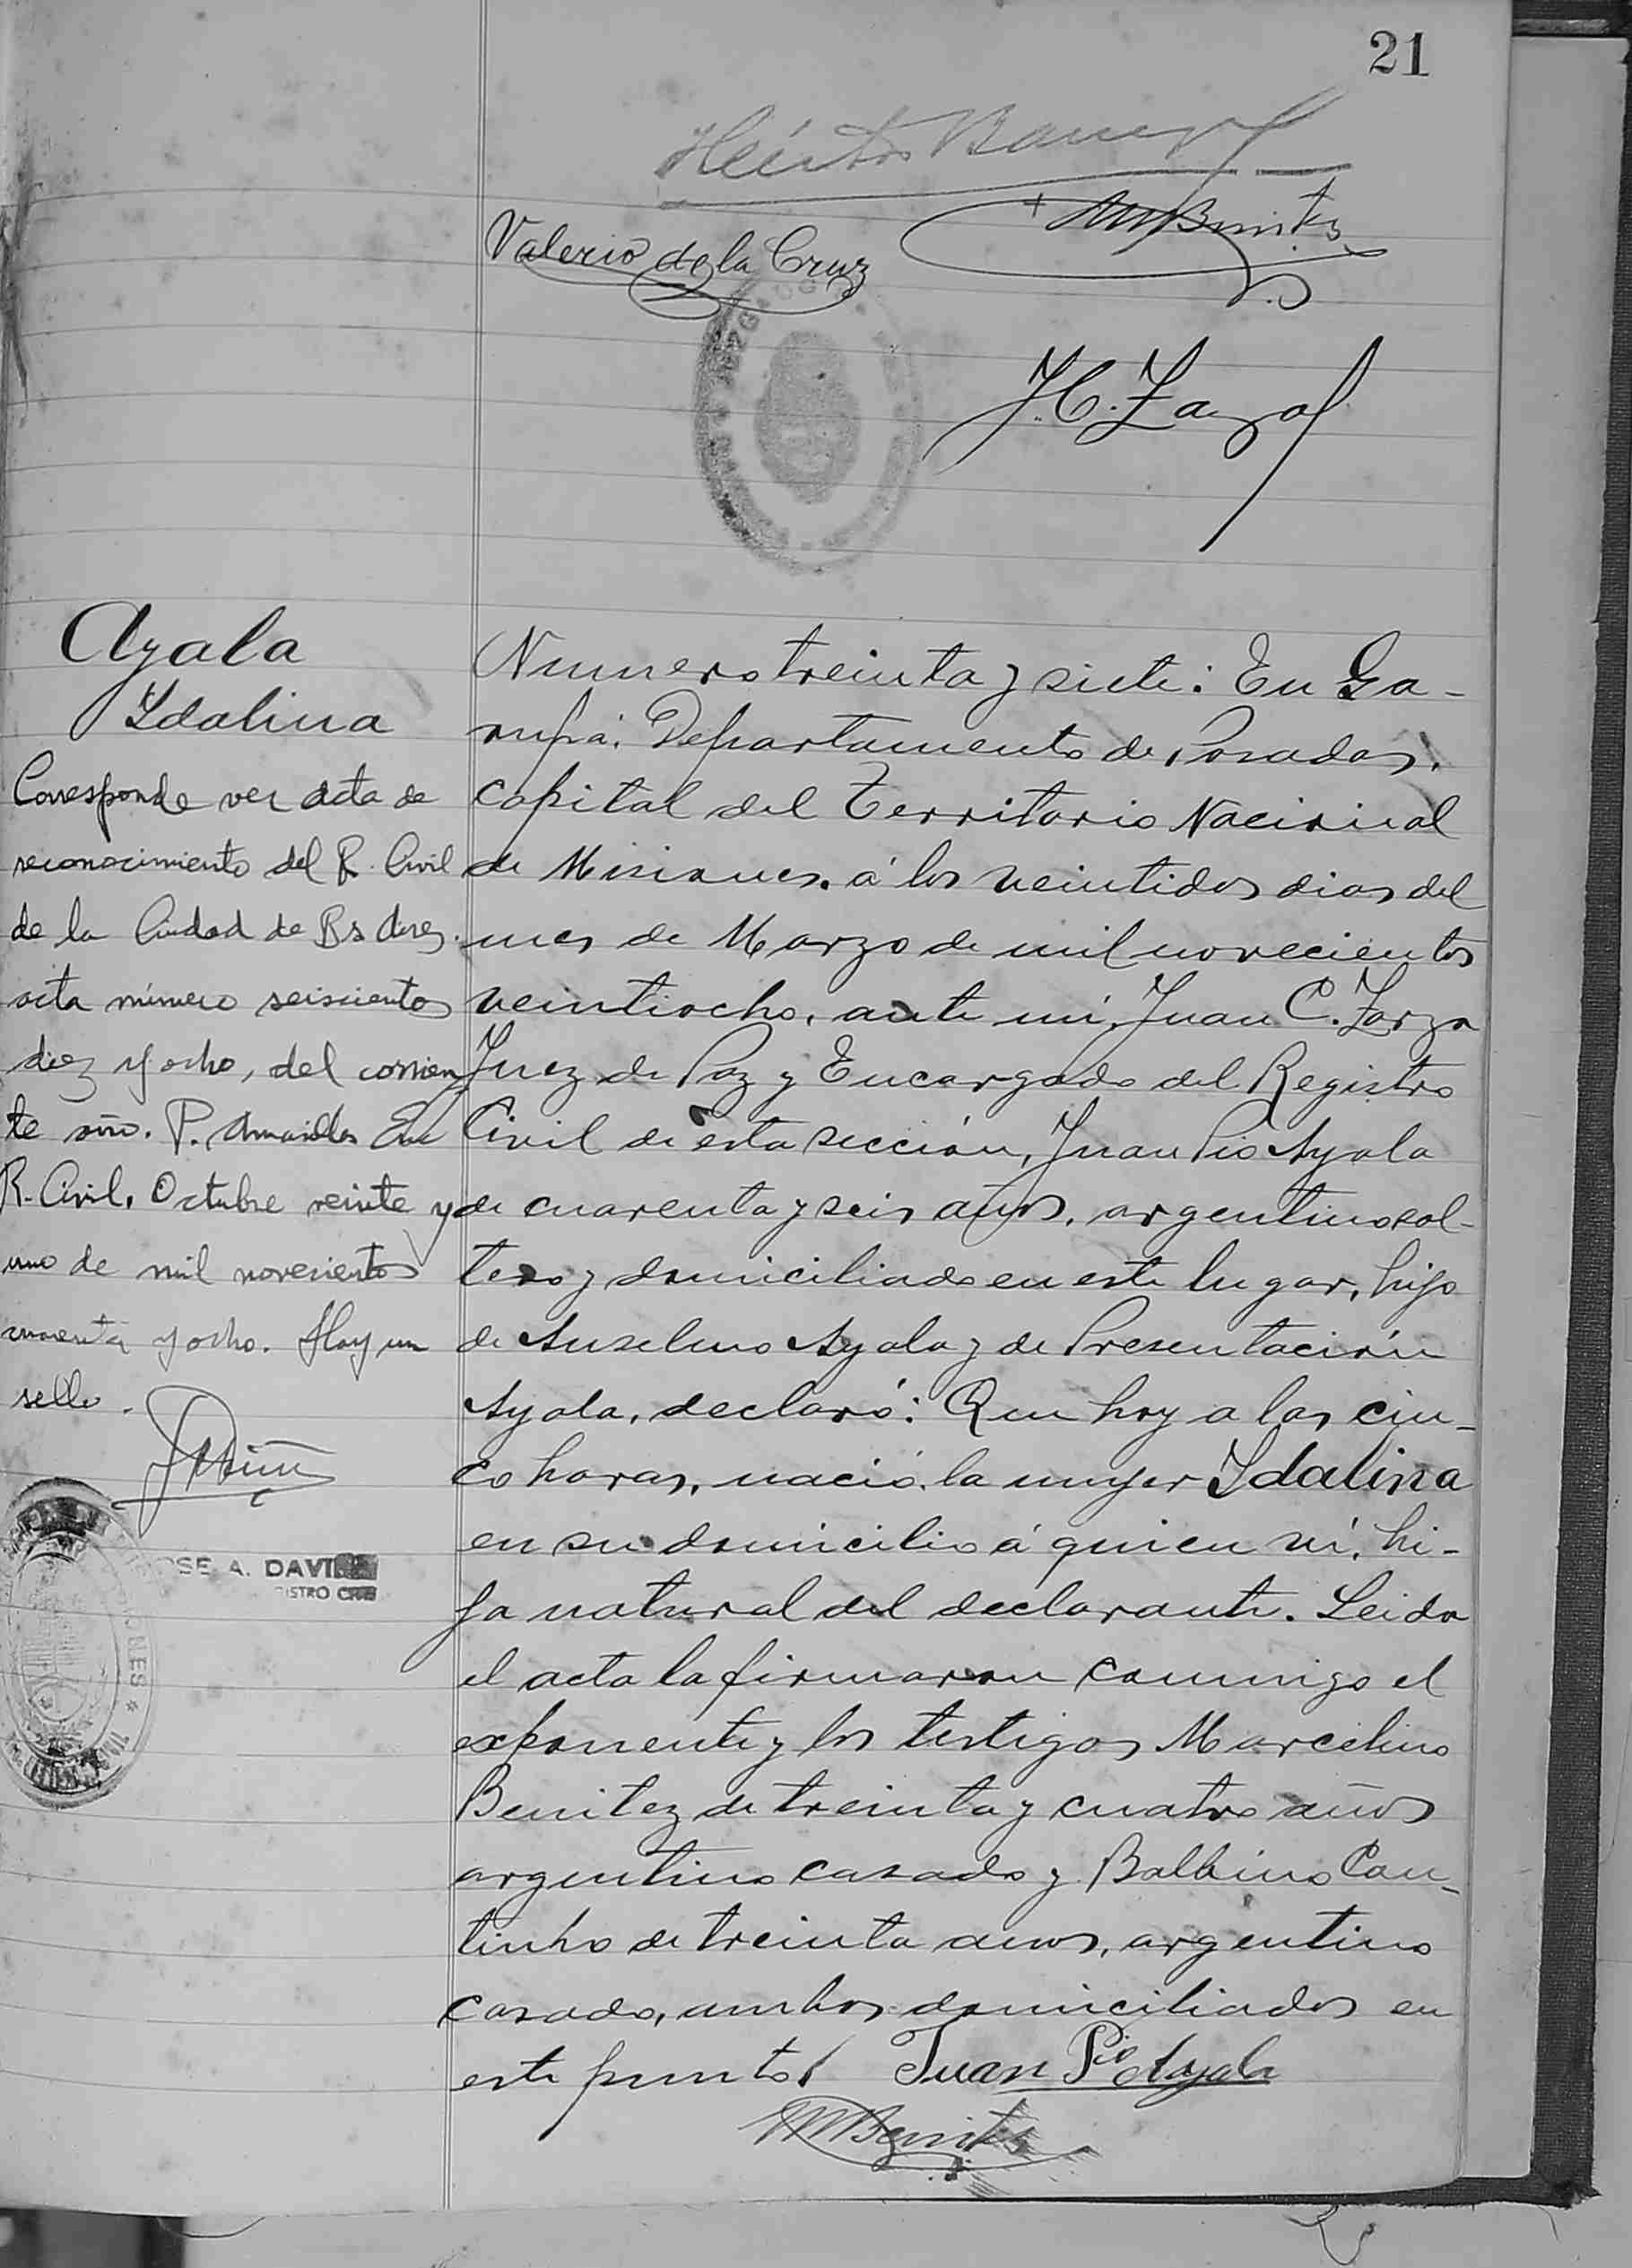 21
Valerio de la Cruz
MBenitez
J. C. Zarza
Ayala
Ydalina
Corresponde ver acta de
reconocimiento del R. Civil
de la Ciudad de Bs Aires.
acta número seiscientos
diez y ocho, del corrien
te año. P. Amarilla Enc
R. Civil. Octubre veinte y
uno de mil novecientos
cuarenta y ocho. Hay un
sello.
OSE A. DAVI
ISTRO CIVIL
Numero treinta y siete: En Ga-
rupá, Departamento de Posadas,
capital del Territorio Nacional
de Misiones, á los veintidos dias del
mes de Marzo de mil novecientos
veintiocho, ante mi, Juan C. Zarza
Juez de Paz y Encargado del Registro
Civil de esta sección, Juan Pio Ayala
de cuarenta y seis años, argentino sol-
tero y domiciliado en este lugar, hijo
de Anselmo Ayala y de Presentación
Ayala, declaró: Que hoy a las cin-
co horas, nació la mujer Ydalina
en su domicilio á quien ví, hi-
ja natural del declarante. Leida
el acta la firmaron conmigo el
exponente y los testigos Marcelino
Benitez de treinta y cuatro años
argentino casado y Balbino Cou-
tinho de treinta años, argentino
casado, ambos domiciliados en
este punto/ Juan Pio Ayala
MBenitez